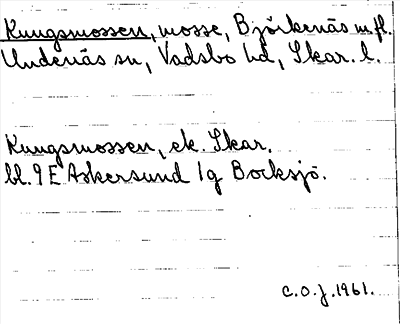 Kungsmossen, mosse, Björkenäs m.fl.
Undenäs sn, Vadsbo hd, Skar. l.
Kungsmossen, ek. Skar.
bl. 9 E Askersund 1g Bocksjö.
C.O.J. 1961.